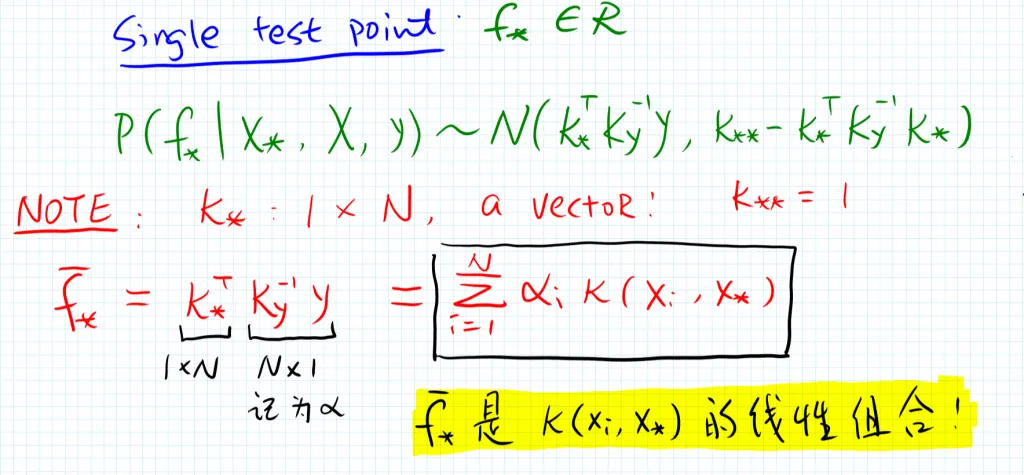 Single test point : f* ∈ R
P(f* | X*, X, y) ~ N(k*ᵀ Ky⁻¹ y, k** - k*ᵀ Ky⁻¹ k*)
NOTE : k* : 1 × N, a vector! k** = 1
f̄* = k*ᵀ Ky⁻¹ y = ∑ᵢ₌₁ᴺ αᵢ k(xᵢ, x*)
1×N N×1
记为α
f̄* 是 k(xᵢ, x*) 的线性组合!